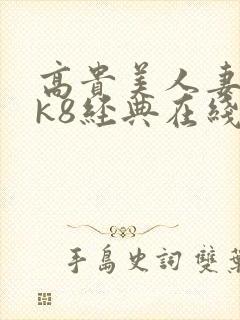 高貴美人妻
k8経典在綫
手島史詞 雙葉